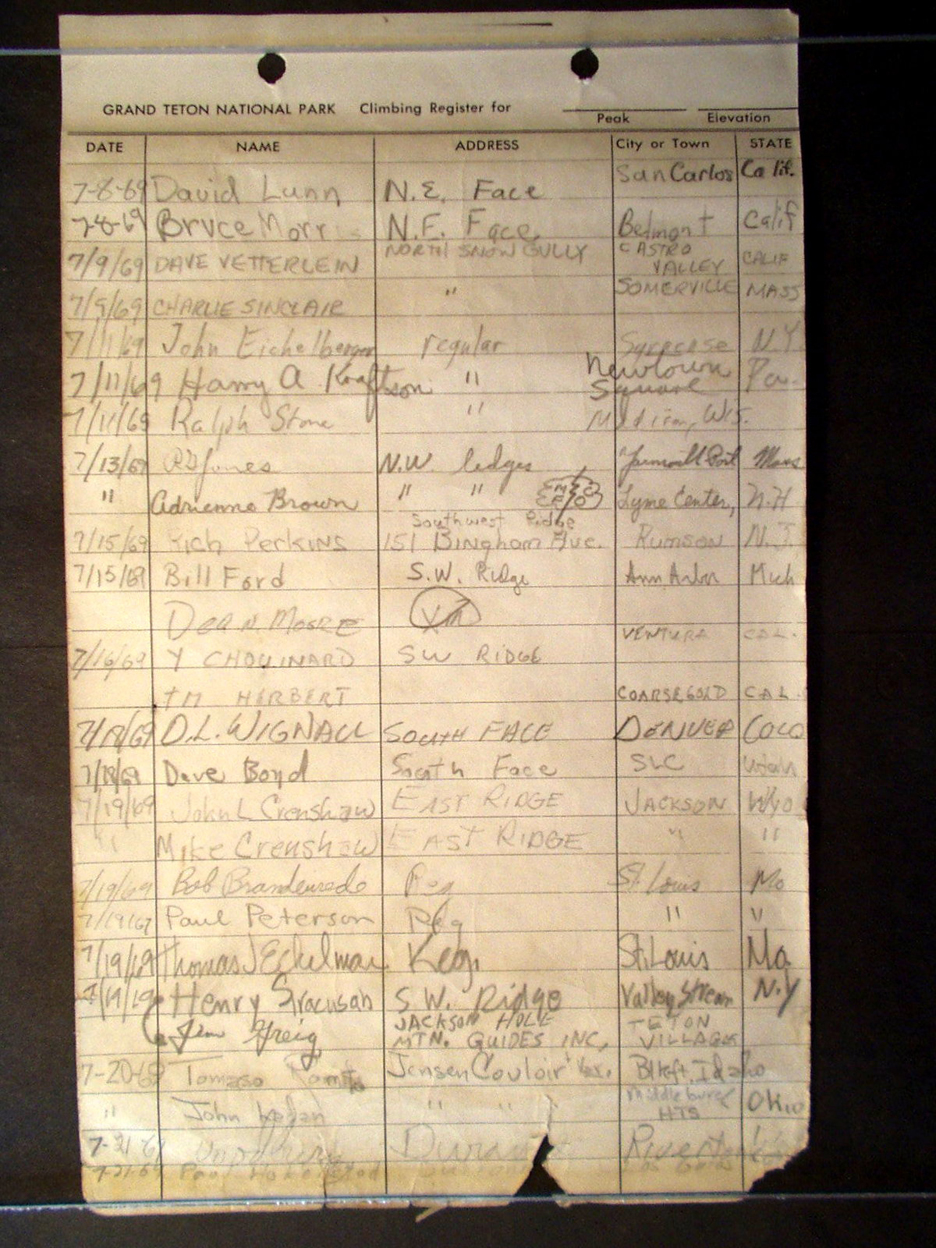 GRAND TETON NATIONAL PARK Climbing Register for
Peak Elevation
DATE NAME ADDRESS City or Town STATE
7-8-69 David Lunn N.E. Face San Carlos Calif.
7-8-69 Bruce Morr N.E. Face. Belmont Calif
7/9/69 DAVE VETTERLEIN NORTH SNOW GULLY CASTRO VALLEY CALIF
7/9/69 CHARLIE SINCLAIR " SOMERVILLE MASS
7/11/69 John Eichelberger regular Syracuse N.Y.
7/11/69 Harry A. Kraftson " Newtown Square Pa.
7/11/69 Ralph Stone " Madison, Wis.
7/13/69 Jones N.W. ledges Mass
" Adrienne Brown " " Lyme Center, N.H
Southwest Ridge
7/15/69 Rich Perkins 151 Bingham Ave. Rumson N.J.
7/15/69 Bill Ford S.W. Ridge Ann Arbor Mich
Dean Moore
7/16/69 Y CHOUINARD SW RIDGE VENTURA CAL.
TM HERBERT COARSEGOLD CAL.
7/18/69 D.L. WIGNALL SOUTH FACE DENVER COLO
7/18/69 Dave Boyd South Face SLC Utah
7/19/69 John L Crenshaw EAST RIDGE JACKSON Wyo
" Mike Crenshaw EAST RIDGE " "
7/19/69 Bob Reg St. Louis Mo
7/19/69 Paul Peterson Reg " "
7/19/69 Thomas J Eckelman Reg. St. Louis Mo
7/19/69 Henry Siracusan S.W. Ridge Valley Stream N.Y
Jim Greig JACKSON HOLE MTN. GUIDES INC, TETON VILLAGE
7-20-69 Tomaso Jensen Couloir Var. Blkft. Idaho
" John " " Middleburg HTS Ohio
7-21-69 Riverton
7-21-69 Paul